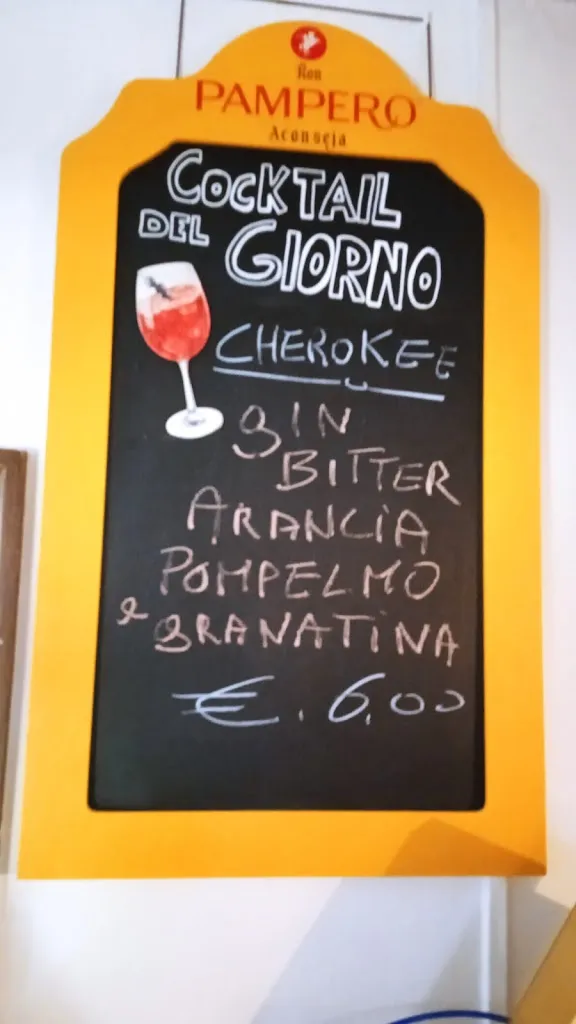 Ron
PAMPERO
Aconseja
COCKTAIL
DEL GIORNO
CHEROKEE
gIN
BITTER
ARANCIA
POMPELMO
e gRANATINA
€. 6,00